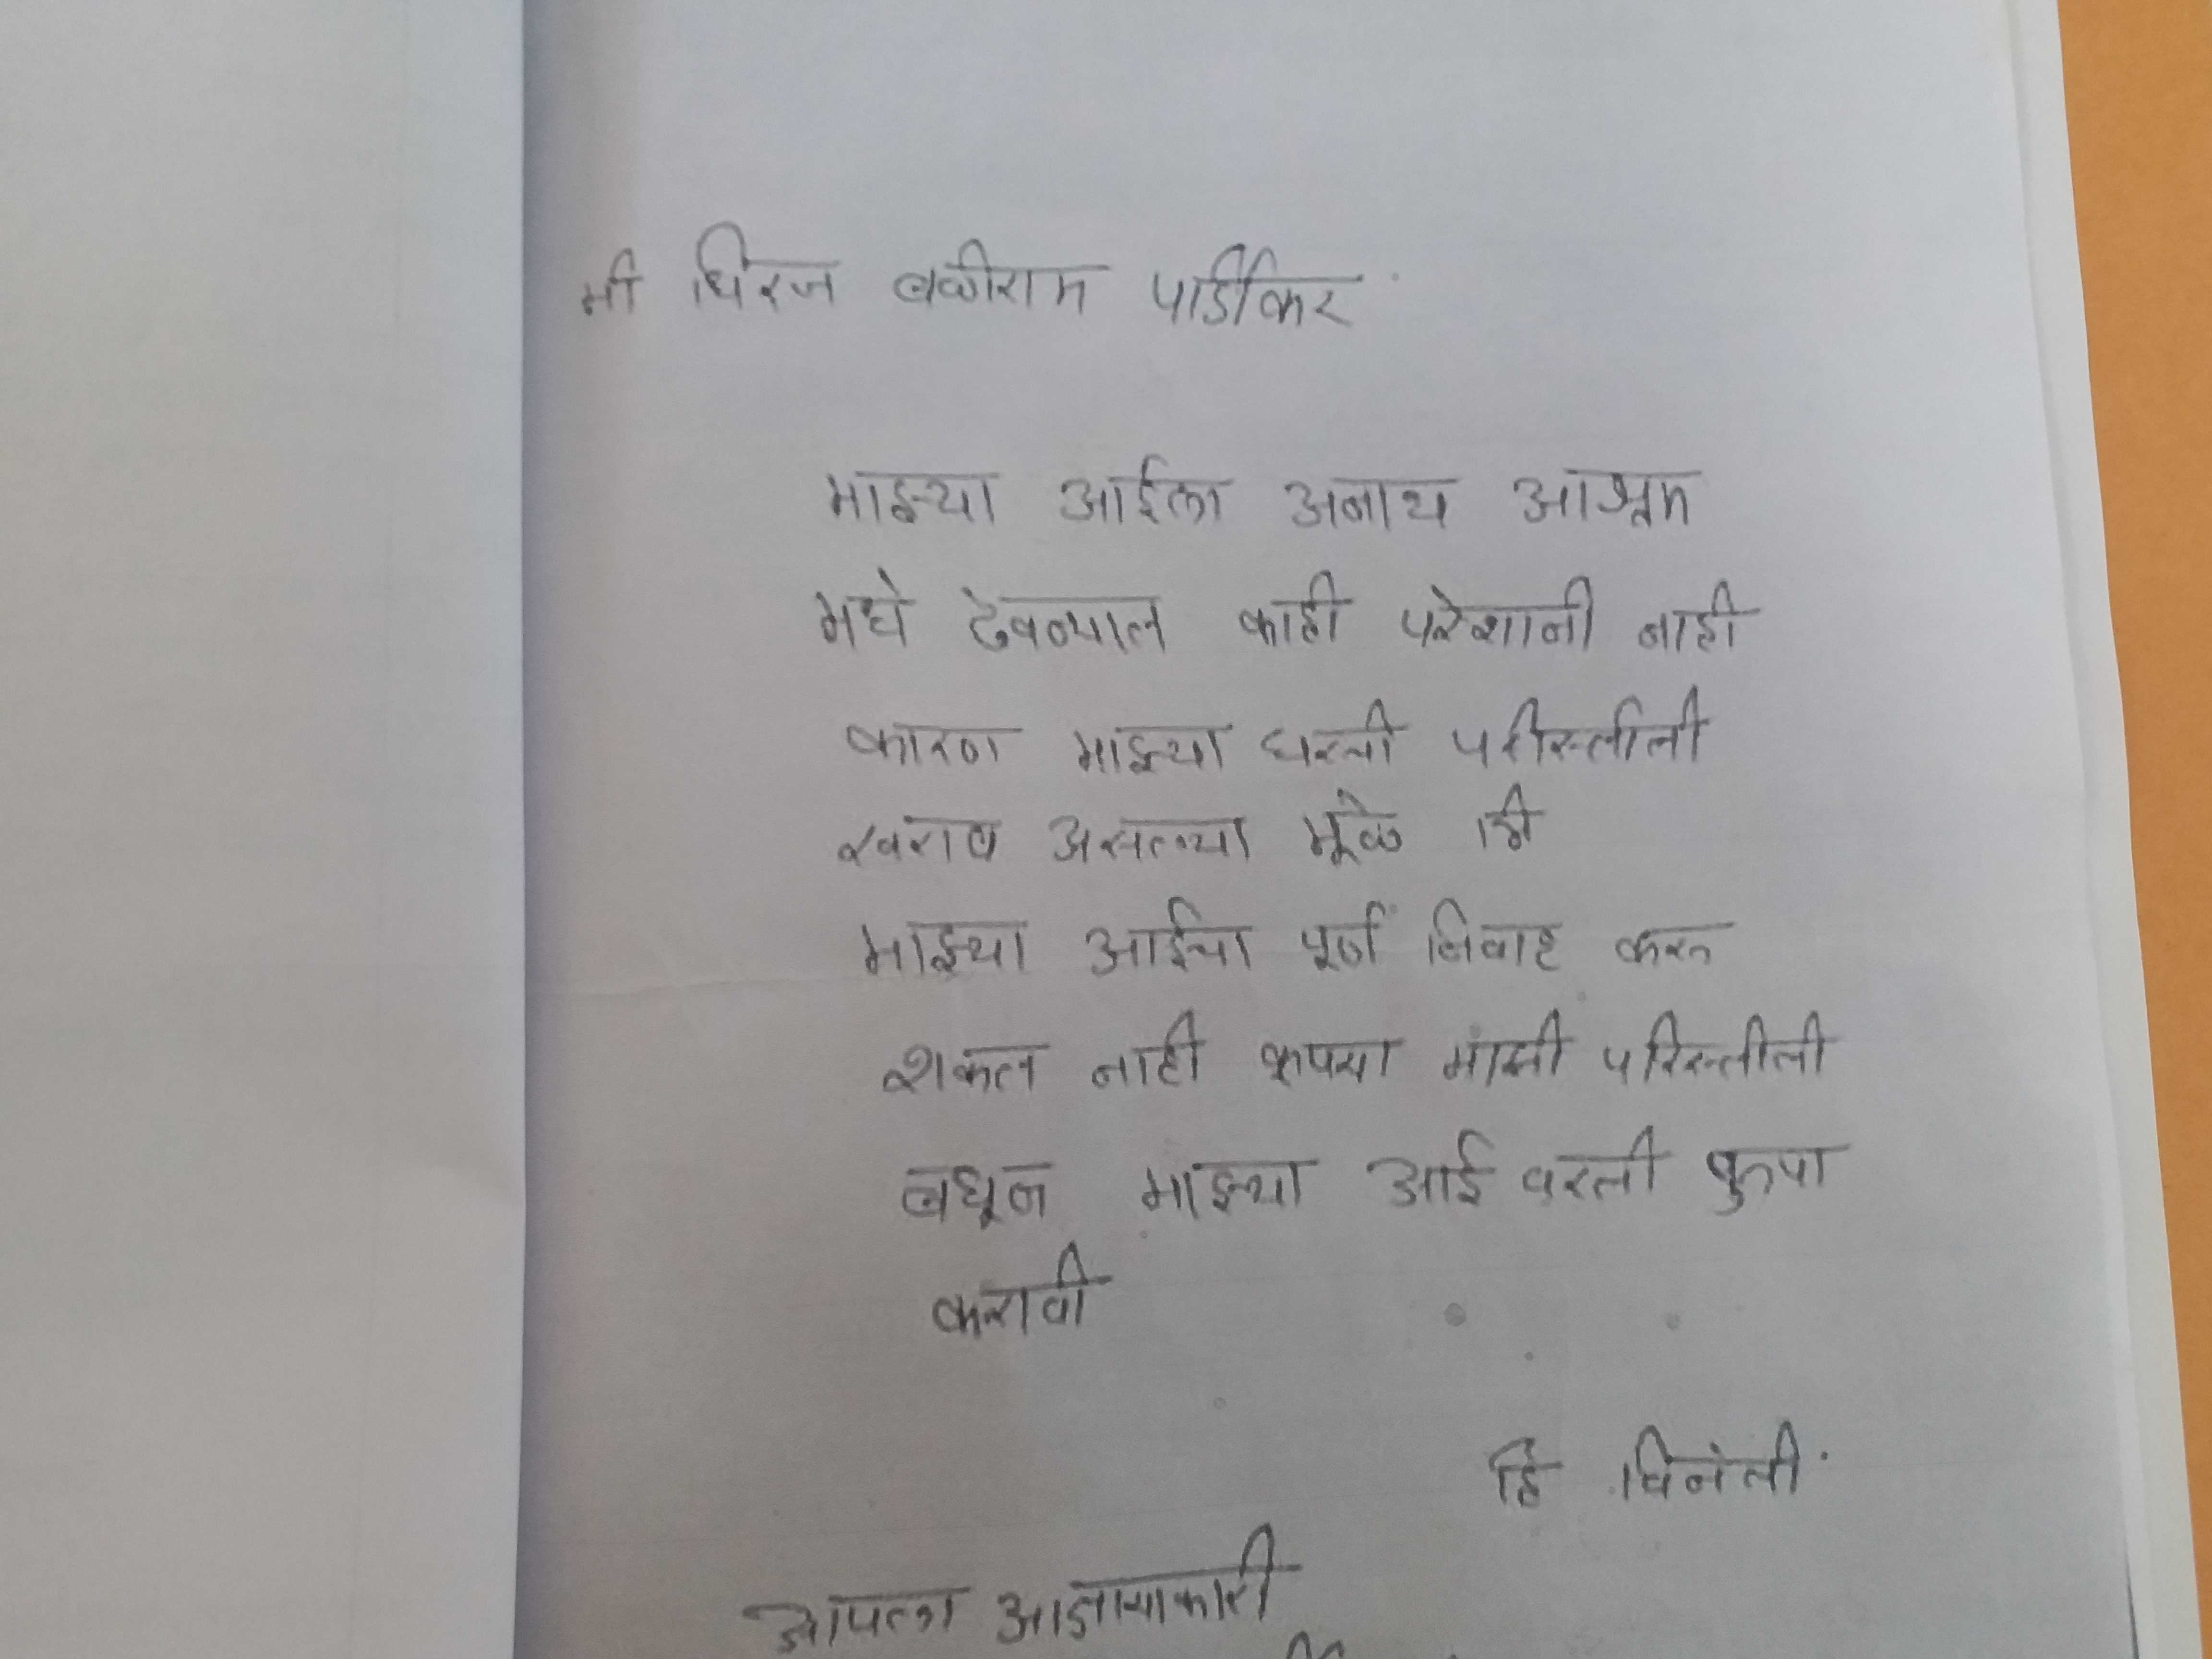 मी धिरज बळीराम पार्डीकर
माझ्या आईला अनाथ आश्रम
मधे ठेवण्यात काही परेशानी नाही
कारण माझ्या घरती परीस्तीती
खराब असल्या मूळे मि
माझ्या आईचा पूर्ण निवाह करु
शकत नाही कृपया माझी परिस्तीती
बघून माझ्या आई वरती कृपा
करावी
हि विनंती.
आपला आज्ञायाकारी